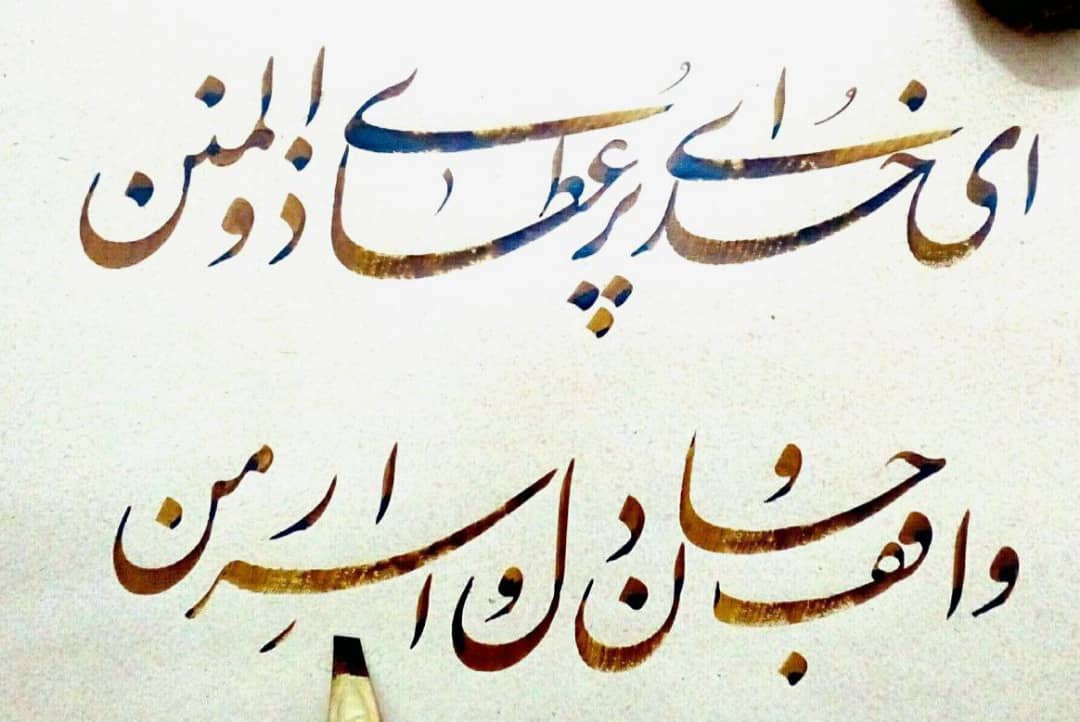 ای خُدای پُر عطای ذوالمنن
واقف جان و دل و اسرارِ من